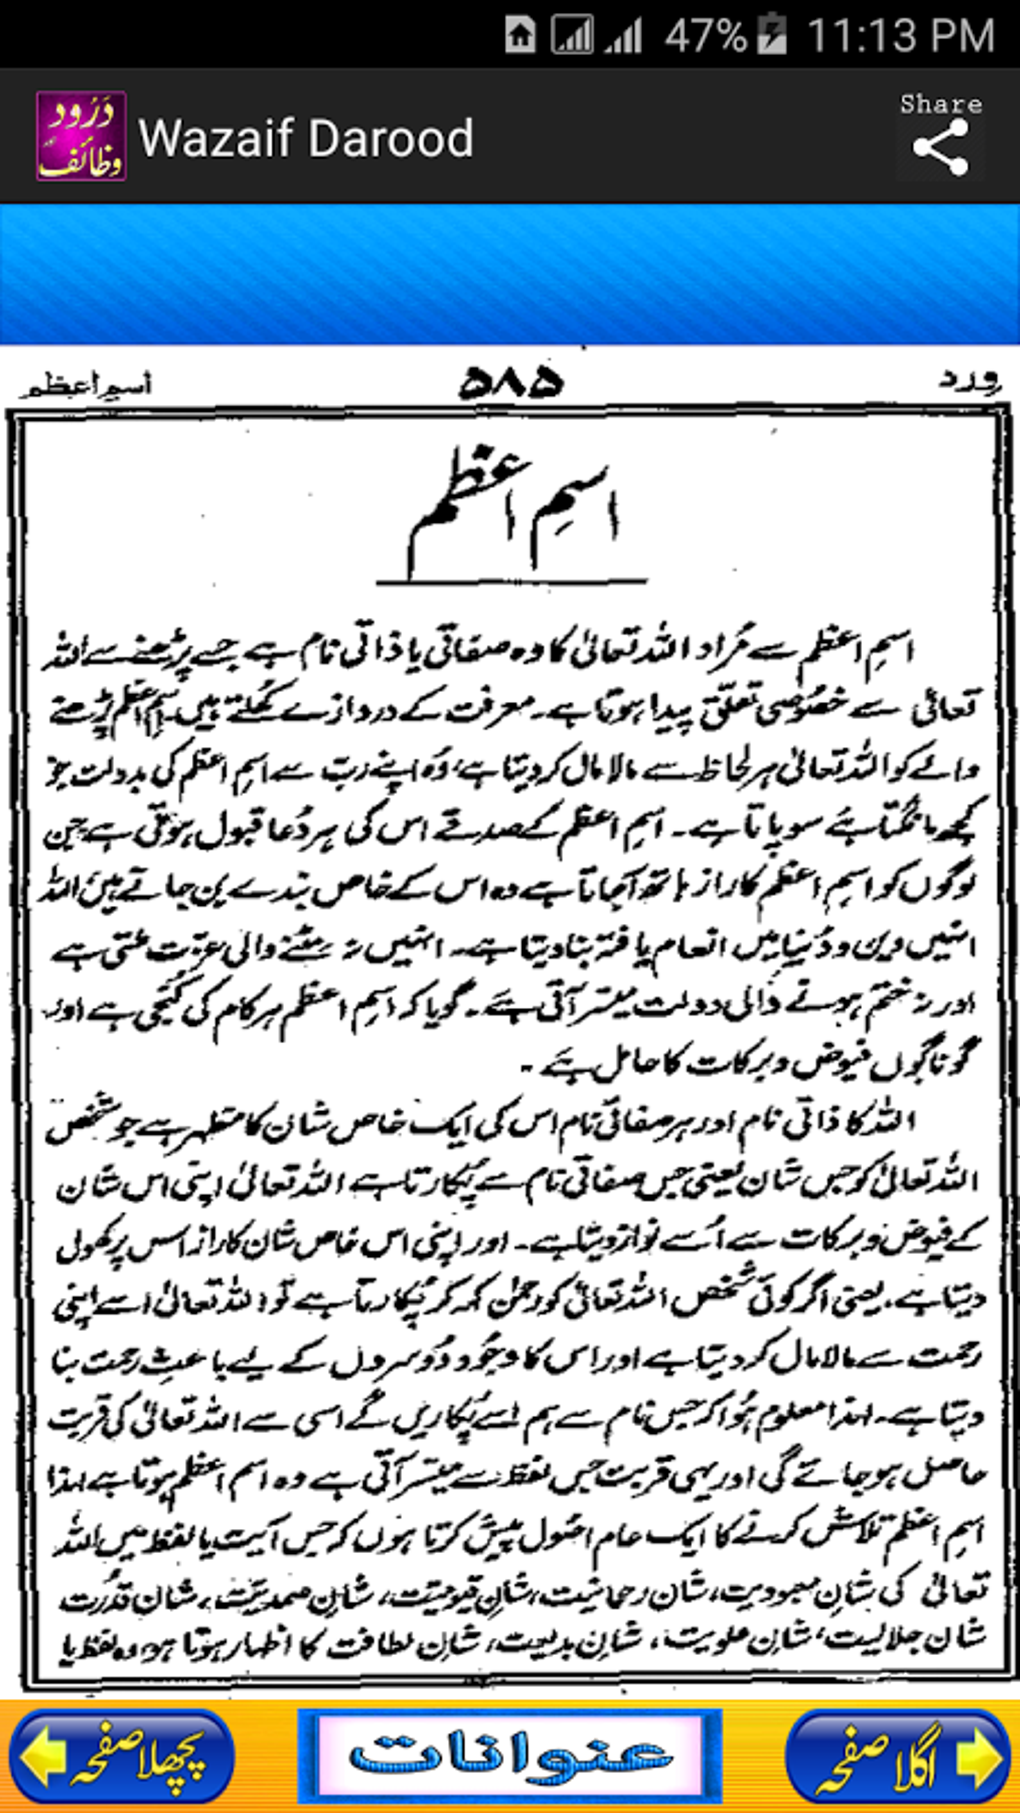 47% 11:13 PM
درود
وظائف
Wazaif Darood
Share
ورد
۵۸۵
اسم اعظم
اسمِ اعظم
اسمِ اعظم سے مُراد اللہ تعالیٰ کا وہ صفاتی یا ذاتی نام ہے جسے پڑھنے سے اللہ
تعالیٰ سے خصُوصی تعلّق پیدا ہوتا ہے۔ معرفت کے دروازے کھُلتے ہیں۔ اسمِ اعظم پڑھنے
والے کو اللہ تعالیٰ ہر لحاظ سے مالا مال کر دیتا ہے، وُہ اپنے رب سے اسمِ اعظم کی بدولت جو
کچھ مانگتا ہے سو پاتا ہے۔ اسمِ اعظم کے صدقے اس کی ہر دُعا قبول ہوتی ہے جن
لوگوں کو اسمِ اعظم کا راز ہاتھ آ جاتا ہے وہ اس کے خاص بندے بن جاتے ہیں اللہ
انہیں دین و دُنیا میں انعام یافتہ بنا دیتا ہے۔ انہیں نہ مٹنے والی عزت ملتی ہے
اور نہ ختم ہونے والی دولت میسّر آتی ہے۔ گویا کہ اسمِ اعظم ہر کام کی کُنجی ہے اور
گوناگوں فیوض و برکات کا حامل ہے۔
اللہ کا ذاتی نام اور ہر صفاتی نام اس کی ایک خاص شان کا مظہر ہے جو شخص
اللہ تعالیٰ کو جس شان یعنی جس صفاتی نام سے پُکارتا ہے اللہ تعالیٰ اپنی اس شان
کے فیوض و برکات سے اُسے نواز دیتا ہے۔ اور اپنی اس خاص شان کا راز اس پر کھول
دیتا ہے۔ یعنی اگر کوئی شخص اللہ تعالیٰ کو رحمٰن کہہ کر پُکارتا ہے تو اللہ تعالیٰ اسے اپنی
رحمت سے مالا مال کر دیتا ہے اور اس کا وجُود دُوسروں کے لیے باعثِ رحمت بنا
دیتا ہے۔ لہذا معلوم ہُوا کہ جس نام سے ہم اسے پُکاریں گے اسی سے اللہ تعالیٰ کی قربت
حاصل ہو جائے گی اور یہی قربت جس لفظ سے میسّر آتی ہے وہ اسم اعظم ہوتا ہے لہذا
اسمِ اعظم تلاش کرنے کا ایک عام اصُول پیش کرتا ہوں کہ جس آیت یا لفظ میں اللہ
تعالیٰ کی شانِ معبودیت، شان رحمانیت، شانِ قیومیّت، شانِ صمدیّت، شان قدُرت
شان جلالیت، شانِ علویت، شانِ بدیعت، شانِ لطافت کا اظہار ہوتا ہو وہ لفظ یا
اگلا صفحہ
عنوانات
پچھلا صفحہ